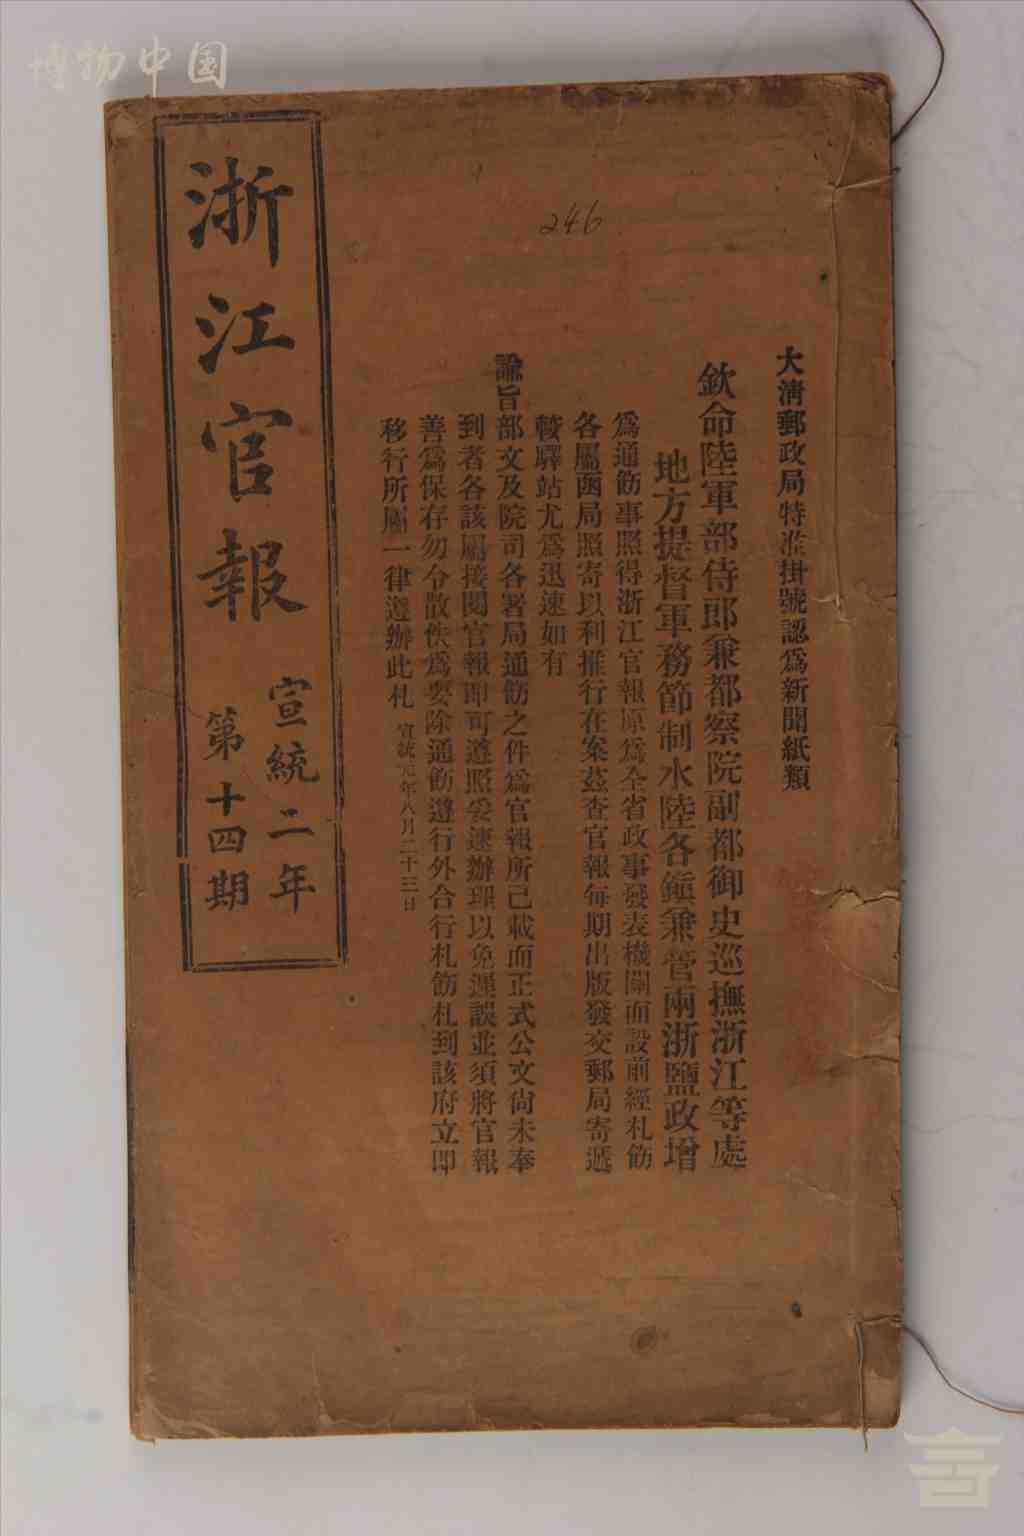 博物中国
246
大清郵政局特准掛號認爲新聞紙類
欽命陸軍部侍郎兼都察院副都御史巡撫浙江等處
地方提督軍務節制水陸各鎭兼管兩浙鹽政增
爲通飭事照得浙江官報原爲全省政事發表機關而設前經札飭
各屬函局照寄以利推行在案茲查官報每期出版發交郵局寄遞
較驛站尤爲迅速如有
諭旨部文及院司各署局通飭之件爲官報所已載而正式公文尙未奉
到者各該屬接閱官報卽可遵照妥速辦理以免遲誤並須將官報
善爲保存勿令散佚爲要除通飭遵行外合行札飭札到該府立卽
移行所屬一律遵辦此札 宣統元年八月二十三日
浙江官報
宣統二年
第十四期